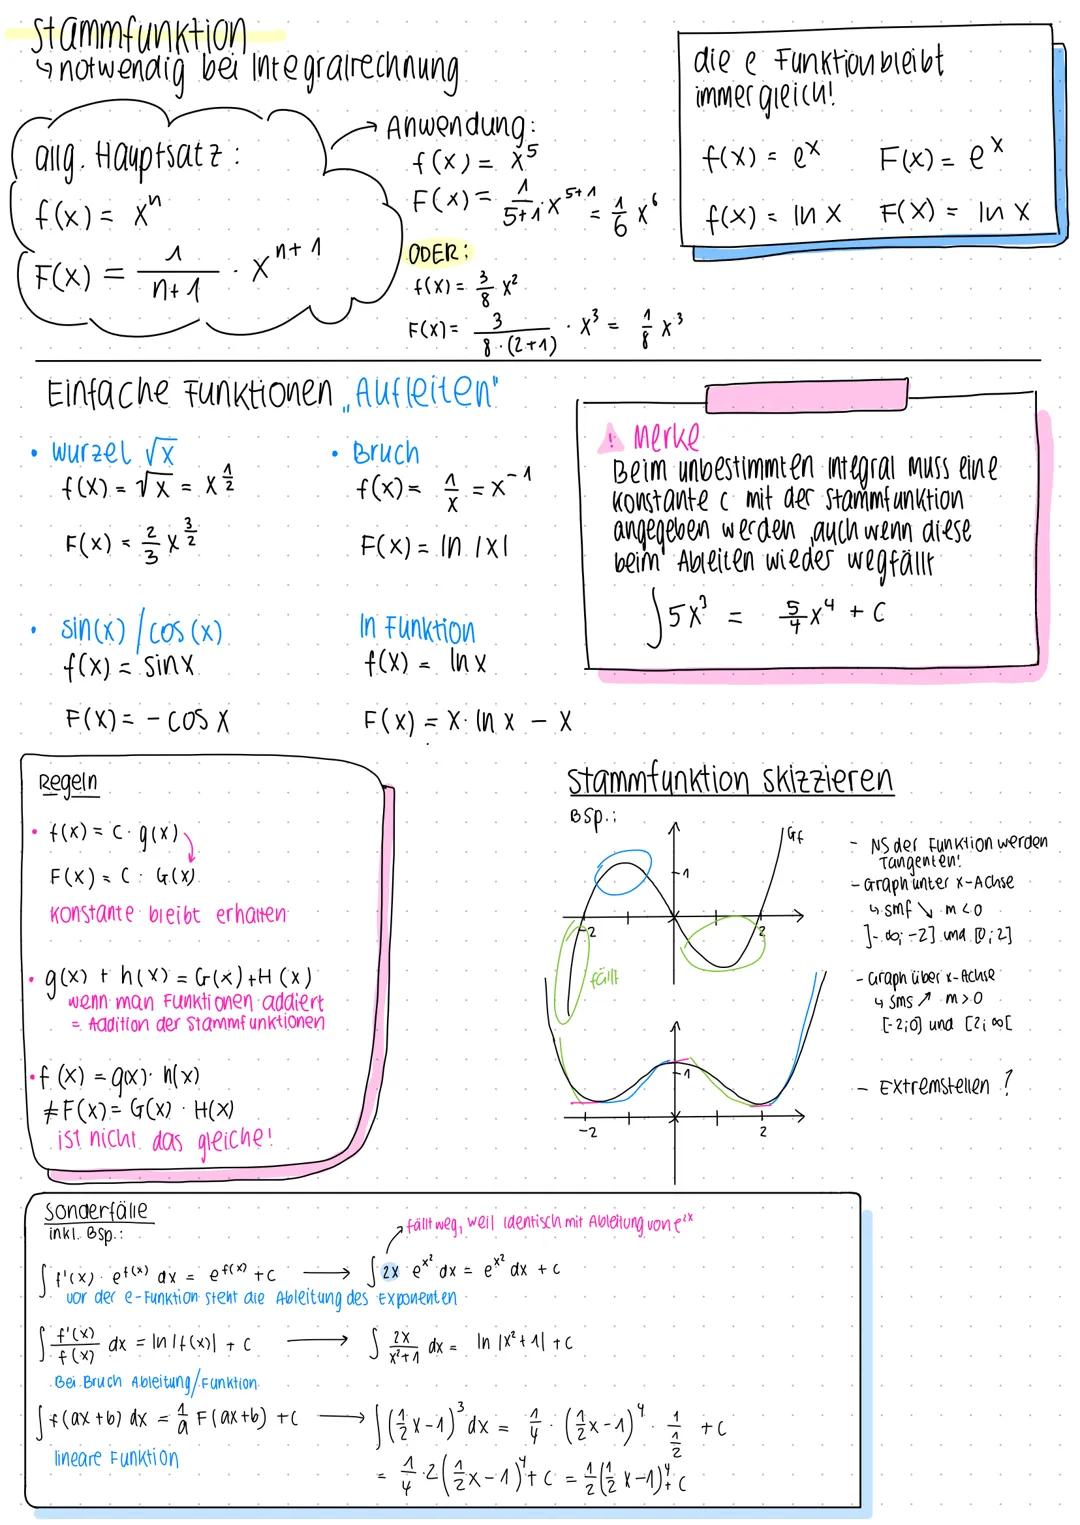 Stammfunktion
↳ notwendig bei Integralrechnung
allg. Hauptsatz:
f(x) = xⁿ
F(x) = 1/(n+1) · xⁿ⁺¹
Anwendung:
f(x) = x⁵
F(x) = 1/(5+1) · x⁵⁺¹ = 1/6 x⁶
ODER:
f(x) = 3/8 x²
F(x) = 3/(8·(2+1)) · x³ = 1/8 x³
die e Funktion bleibt
immer gleich!
f(x) = eˣ F(x) = eˣ
f(x) = ln x F(x) = ln x
Einfache Funktionen „Aufleiten"
• Wurzel √x
f(x) = √x = x^(1/2)
F(x) = 2/3 x^(3/2)
• Bruch
f(x) = 1/x = x⁻¹
F(x) = ln |x|
• sin(x) / cos(x)
f(x) = sin x
F(x) = - cos x
ln Funktion
f(x) = ln x
F(x) = x · ln x - x
! Merke
Beim unbestimmten Integral muss eine
Konstante c mit der Stammfunktion
angegeben werden, auch wenn diese
beim Ableiten wieder wegfällt
∫ 5x³ = 5/4 x⁴ + C
Regeln
• f(x) = C · g(x)
F(x) = C · G(x)
Konstante bleibt erhalten
• g(x) + h(x) = G(x) + H(x)
wenn man Funktionen addiert
= Addition der Stammfunktionen
• f(x) = g(x) · h(x)
≠ F(x) = G(x) · H(x)
ist nicht das gleiche!
Stammfunktion skizzieren
Bsp.:
Gf
1
-2
2
fällt
1
-2
2
- NS der Funktion werden
Tangenten!
- Graph unter x-Achse
↳ smf ↘ m < 0
]-∞; -2] und [0; 2]
- Graph über x-Achse
↳ sms ↗ m > 0
[-2; 0] und [2; ∞[
- Extremstellen ?
Sonderfälle
inkl. Bsp.:
fällt weg, weil identisch mit Ableitung von e²ˣ
∫ f'(x) · e^(f(x)) dx = e^(f(x)) + c → ∫ 2x · e^(x²) dx = e^(x²) dx + c
vor der e-Funktion steht die Ableitung des Exponenten
∫ f'(x)/f(x) dx = ln |f(x)| + c → ∫ 2x/(x²+1) dx = ln |x²+1| + c
Bei Bruch Ableitung/Funktion
∫ f(ax+b) dx = 1/a F(ax+b) + c → ∫ (1/2 x - 1)³ dx = 1/4 · (1/2 x - 1)⁴ · 1/(1/2) + c
lineare Funktion
= 1/4 · 2 (1/2 x - 1)⁴ + c = 1/2 (1/2 x - 1)⁴ + c